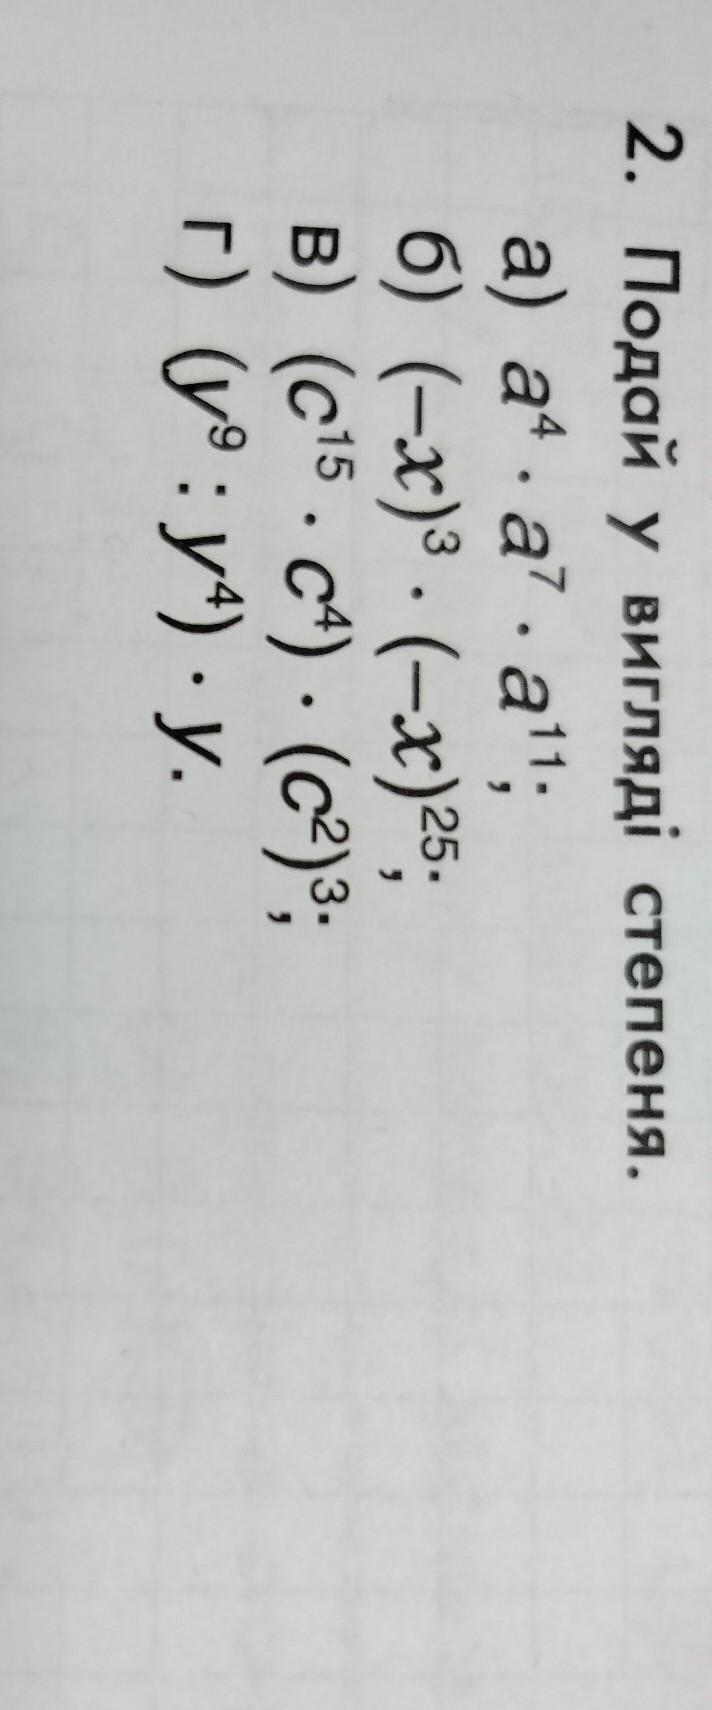 2. Подай у вигляді степеня.
а) a⁴ · a⁷ · a¹¹;
б) (−x)³ · (−x)²⁵;
в) (c¹⁵ · c⁴) · (c²)³;
г) (y⁹ : y⁴) · y.